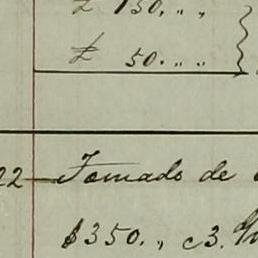 £ 150. " "
£ 50. " "
22 — Tomado de
$350. " c3.